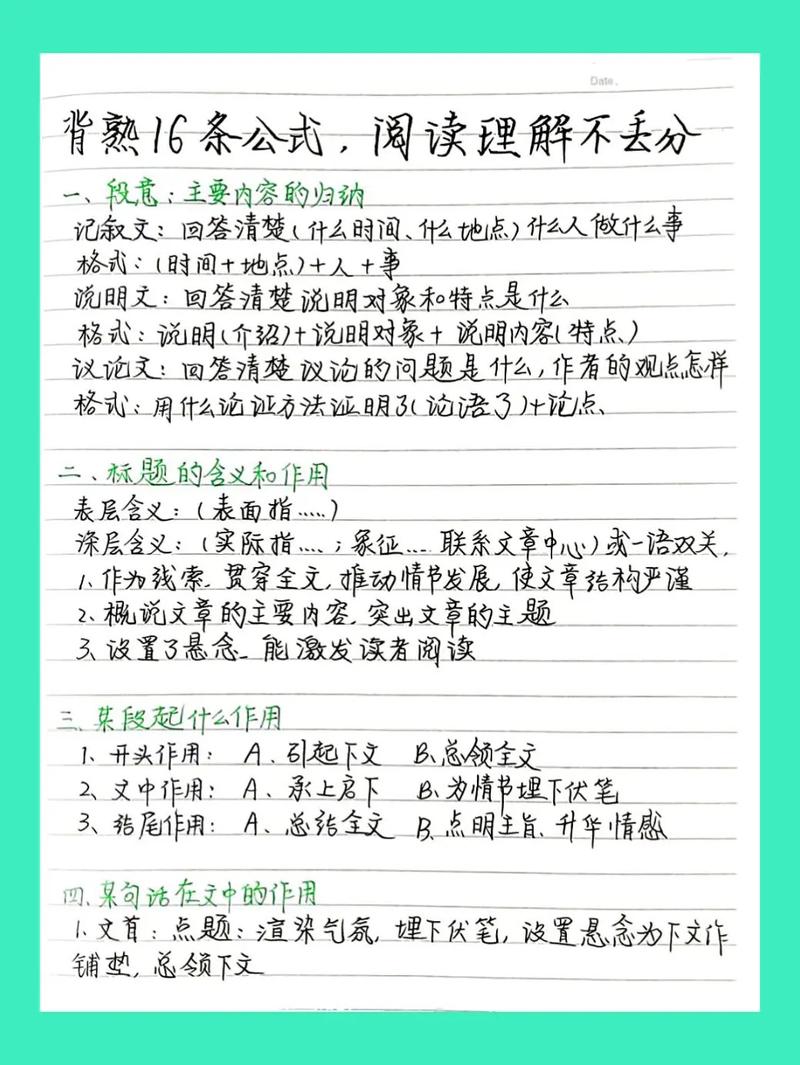 Date.
背熟16条公式，阅读理解不丢分
一、段意：主要内容的归纳
记叙文：回答清楚(什么时间、什么地点)什么人做什么事
格式：(时间+地点)+人+事
说明文：回答清楚说明对象和特点是什么
格式：说明(介绍)+说明对象+说明内容(特点)
议论文：回答清楚议论的问题是什么，作者的观点怎样
格式：用什么论证方法证明了(论语了)+论点
二、标题的含义和作用
表层含义：(表面指……)
深层含义：(实际指……；象征……联系文章中心)或一语双关，
1.作为线索、贯穿全文，推动情节发展，使文章结构严谨
2、概说文章的主要内容，突出文章的主题
3、设置了悬念、能激发读者阅读
三、某段起什么作用
1、开头作用：A、引起下文 B、总领全文
2、文中作用：A、承上启下 B、为情节埋下伏笔
3、结尾作用：A、总结全文 B、点明主旨、升华情感
四、某句话在文中的作用
1.文首：点题：渲染气氛，埋下伏笔，设置悬念为下文作
铺垫，总领下文